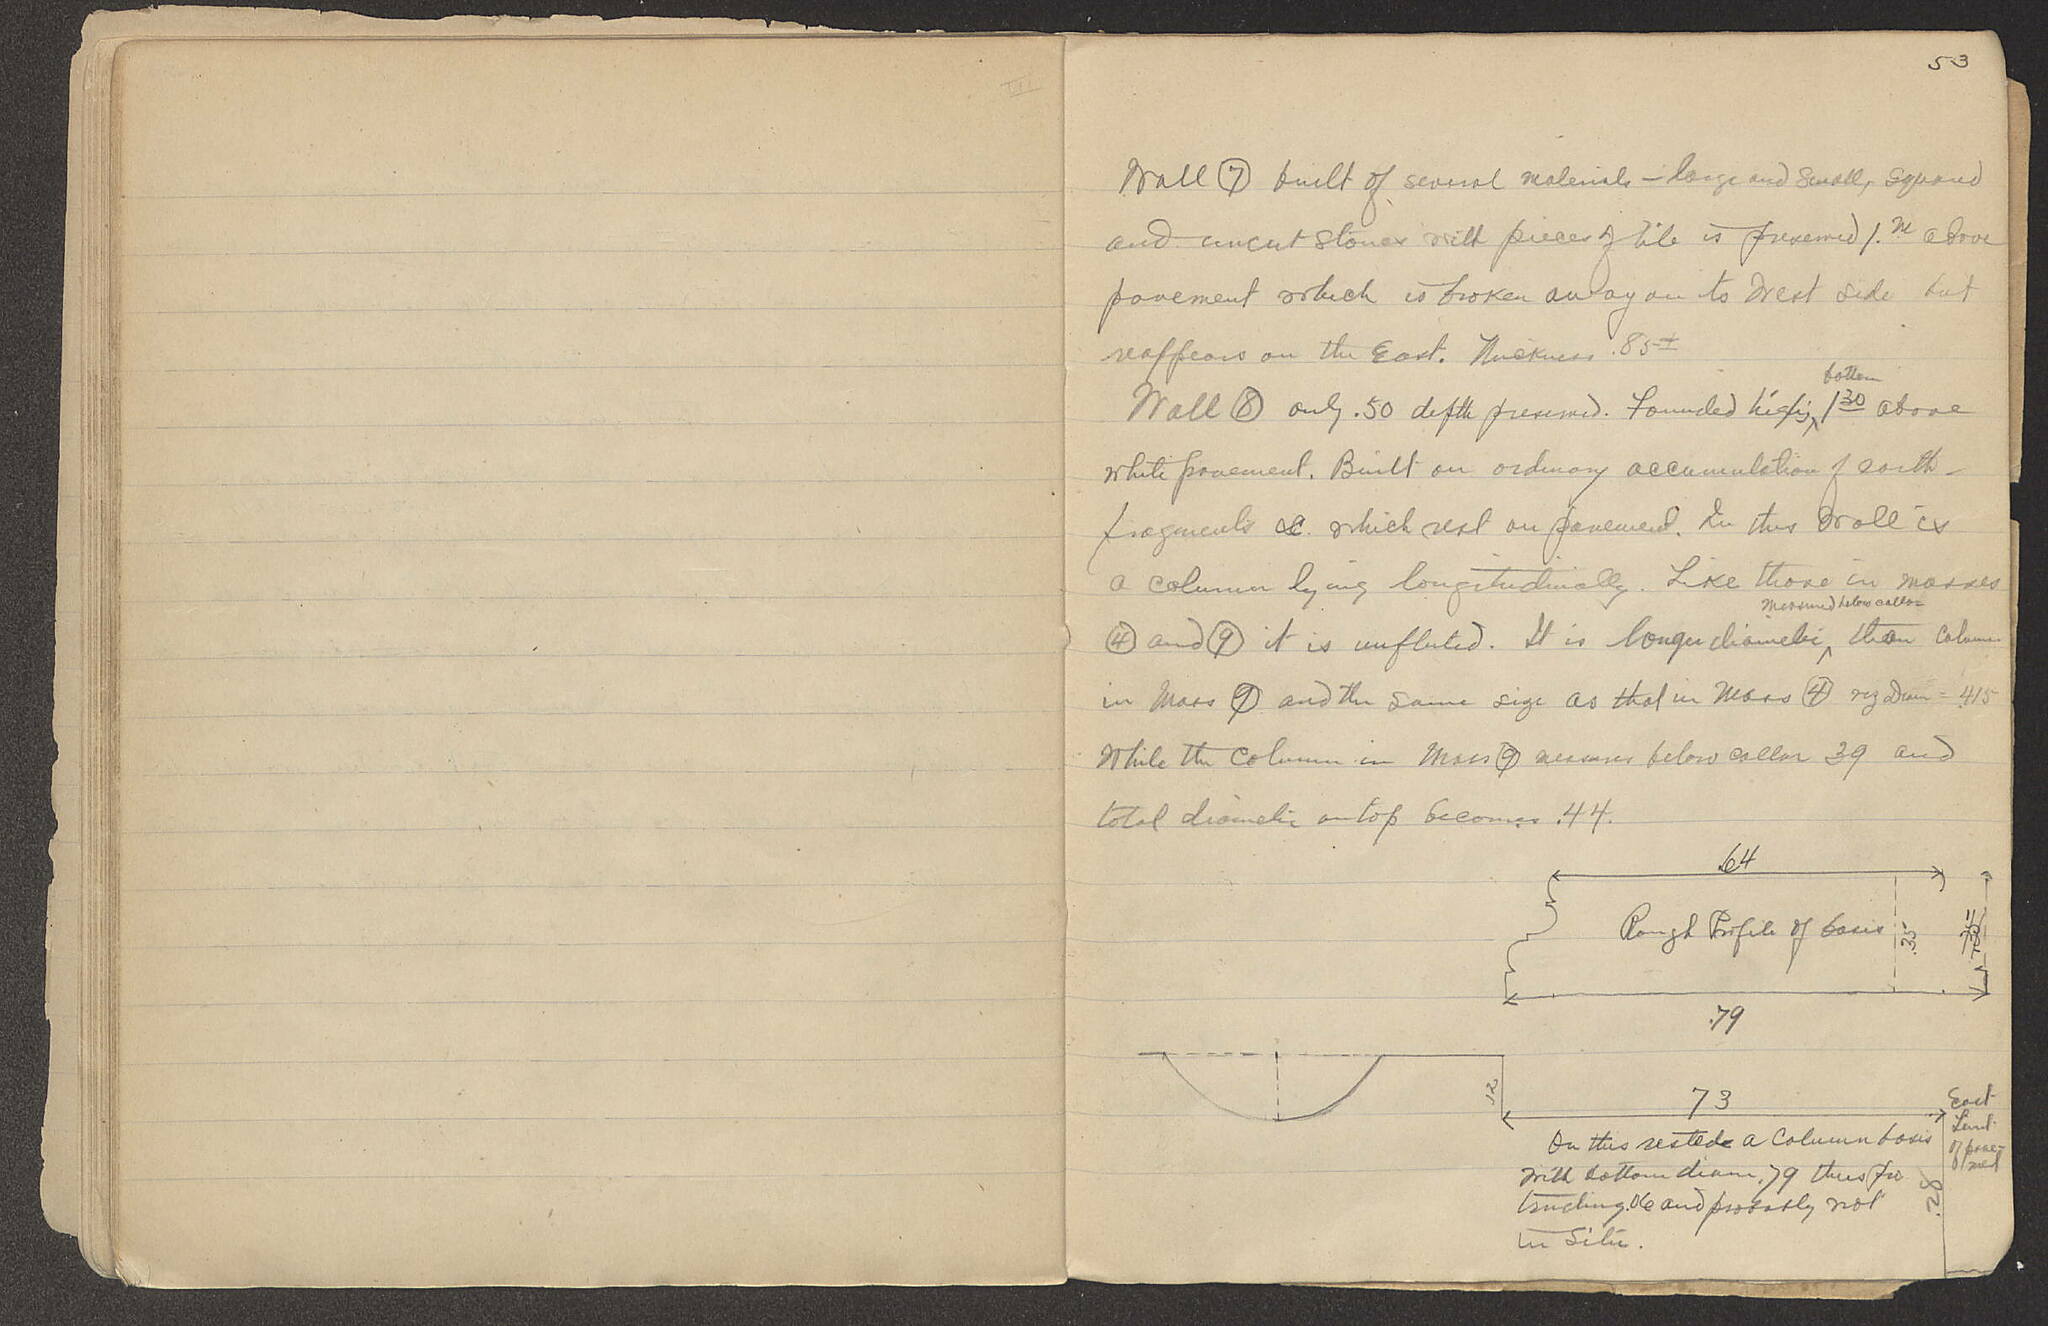 53
Wall ⑦ built of several materials – large and small, squared
and uncut stones with pieces of tile is preserved 1.m above
pavement which is broken away on to West side but
reappears on the East. Thickness .85±
bottom
Wall ⑧ only .50 depth preserved. Founded high, 1 30 above
white pavement. Built on ordinary accumulation of earth –
fragments &c. which rest on pavement. In this Wall is
a column lying longitudinally. Like those in masses
measured below collar
④ and ⑨ it is unfluted. It is longer diameter than column
in Mass ⑨ and the same size as that in Mass ④ viz Diam = .415
While the column in Mass ⑨ measures below collar 39 and
total diameter on top becomes .44.
.64
Rough Profile of basis
.35
.35
.79
.12
73
East
Limit
of pave-
ment
On this rested a column basis
with bottom diam .79 thus pro
truding .06 and probably not
in situ.
.28